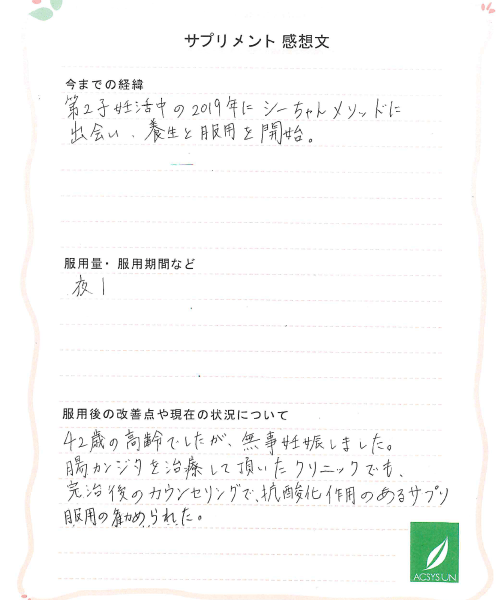 サプリメント 感想文
今までの経緯
第2子妊活中の2019年にシーちゃんメソッドに
出会い、養生と服用を開始。
服用量・服用期間など
夜1
服用後の改善点や現在の状況について
42歳の高齢でしたが、無事妊娠しました。
腸カンジダを治療して頂いたクリニックでも、
完治後のカウンセリングで、抗酸化作用のあるサプリ
服用の勧められた。
ACSYSUN